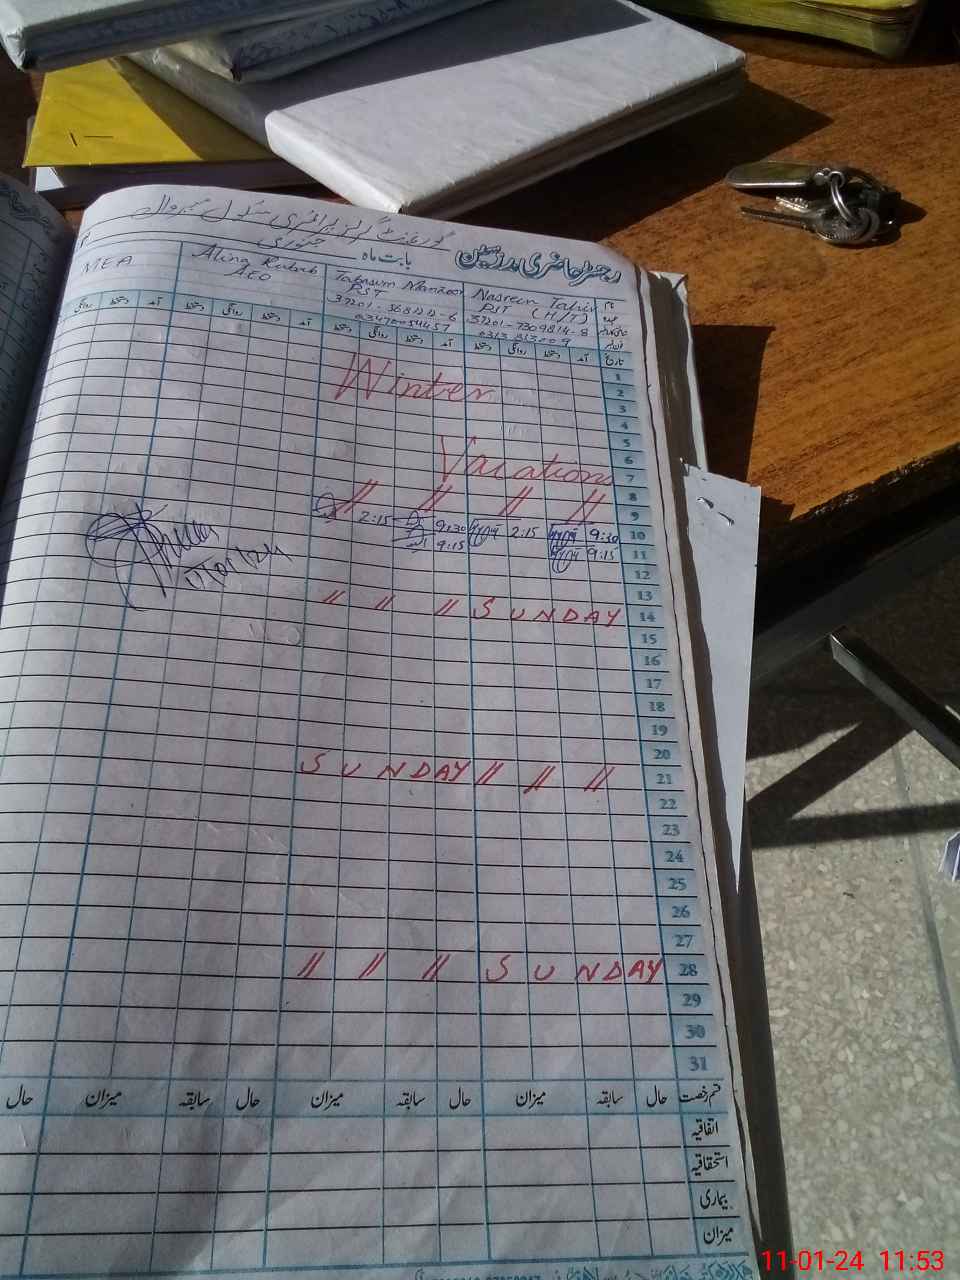 گورنمنٹ گرلز پرائمری سکول
رجسٹر حاضری مدرسین بابت ماہ جنوری
نام Nasreen Tahir Tabasum Manzoor Alina Rubab MEA
عہدہ PST (H/T) PST AEO
37201-7309814-8
03470054457
تاریخ آمد دستخط روانگی دستخط آمد دستخط روانگی دستخط آمد دستخط روانگی دستخط آمد دستخط روانگی
1
2 Winter
3
4
5
6
7 Vacations
8 // // // //
9
10 9:30 2:15 9:30 2:15
11 9:15 9:15
12
13
14 // // // SUNDAY
15
16
17
18
19
20
21 SUNDAY // // //
22
23
24
25
26
27
28 // // // SUNDAY
29
30
31
قسم رخصت حال سابقہ میزان حال سابقہ میزان حال سابقہ میزان حال
اتفاقیہ
استحقاقیہ
بیماری
میزان
11-01-24 11:53